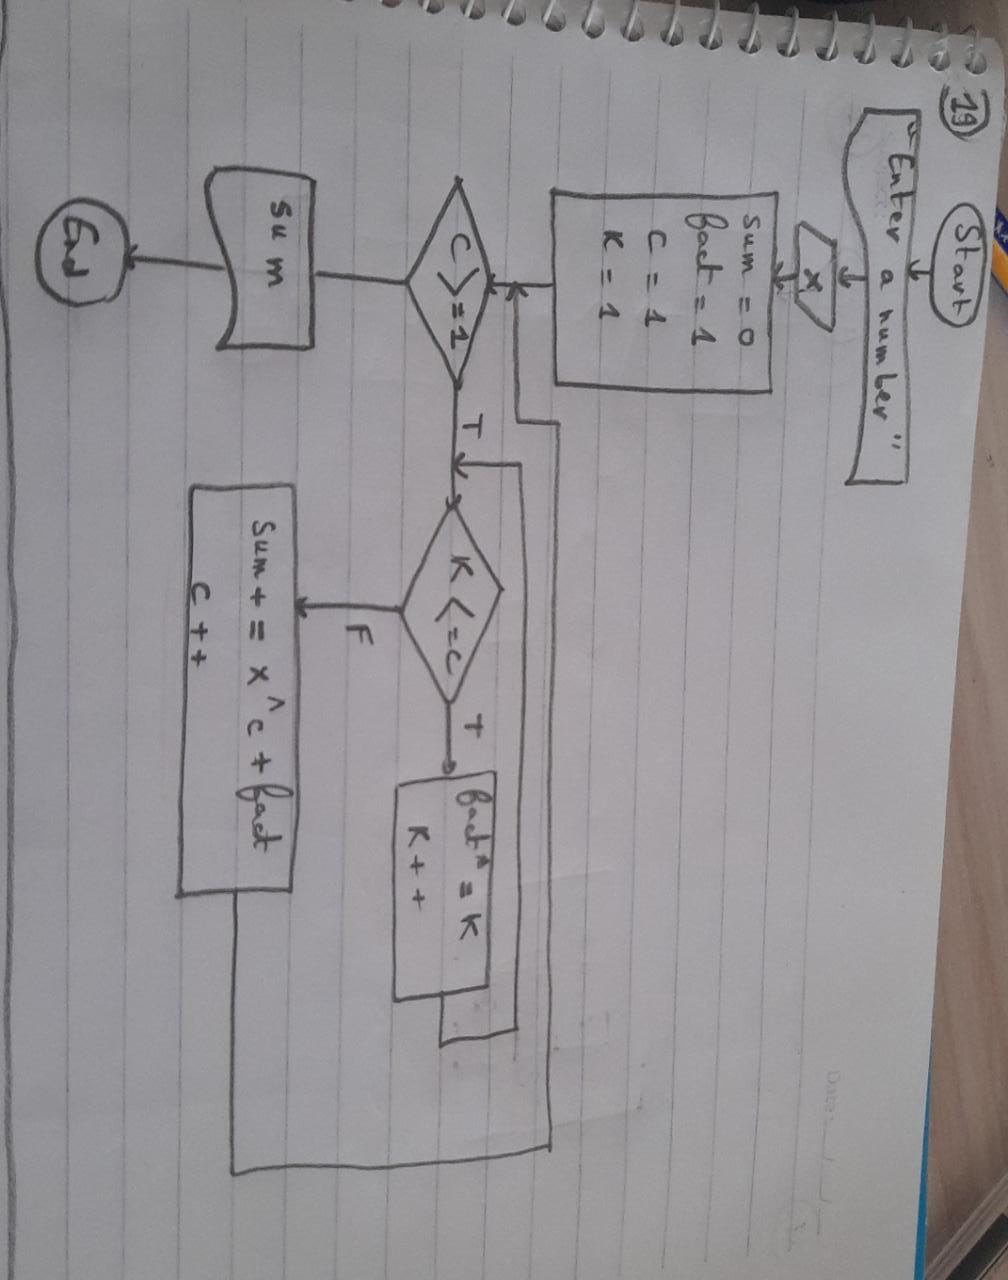 19
Start
"Enter a number"
x
sum = 0
fact = 1
c = 1
K = 1
C >= 1
T
K <= c
T
fact* = K
K++
F
sum + = x^c + fact
c ++
sum
End
Date: